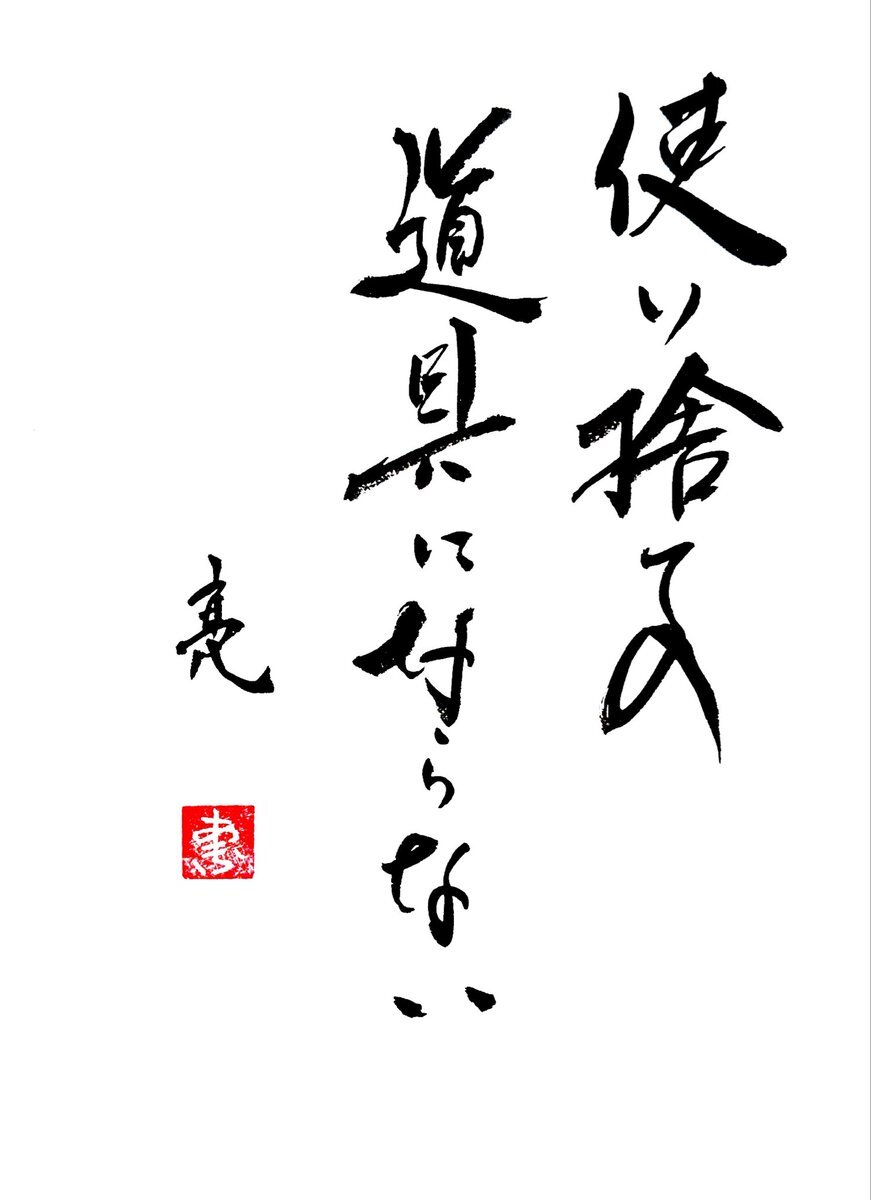 使い捨ての
道具にならない
亮